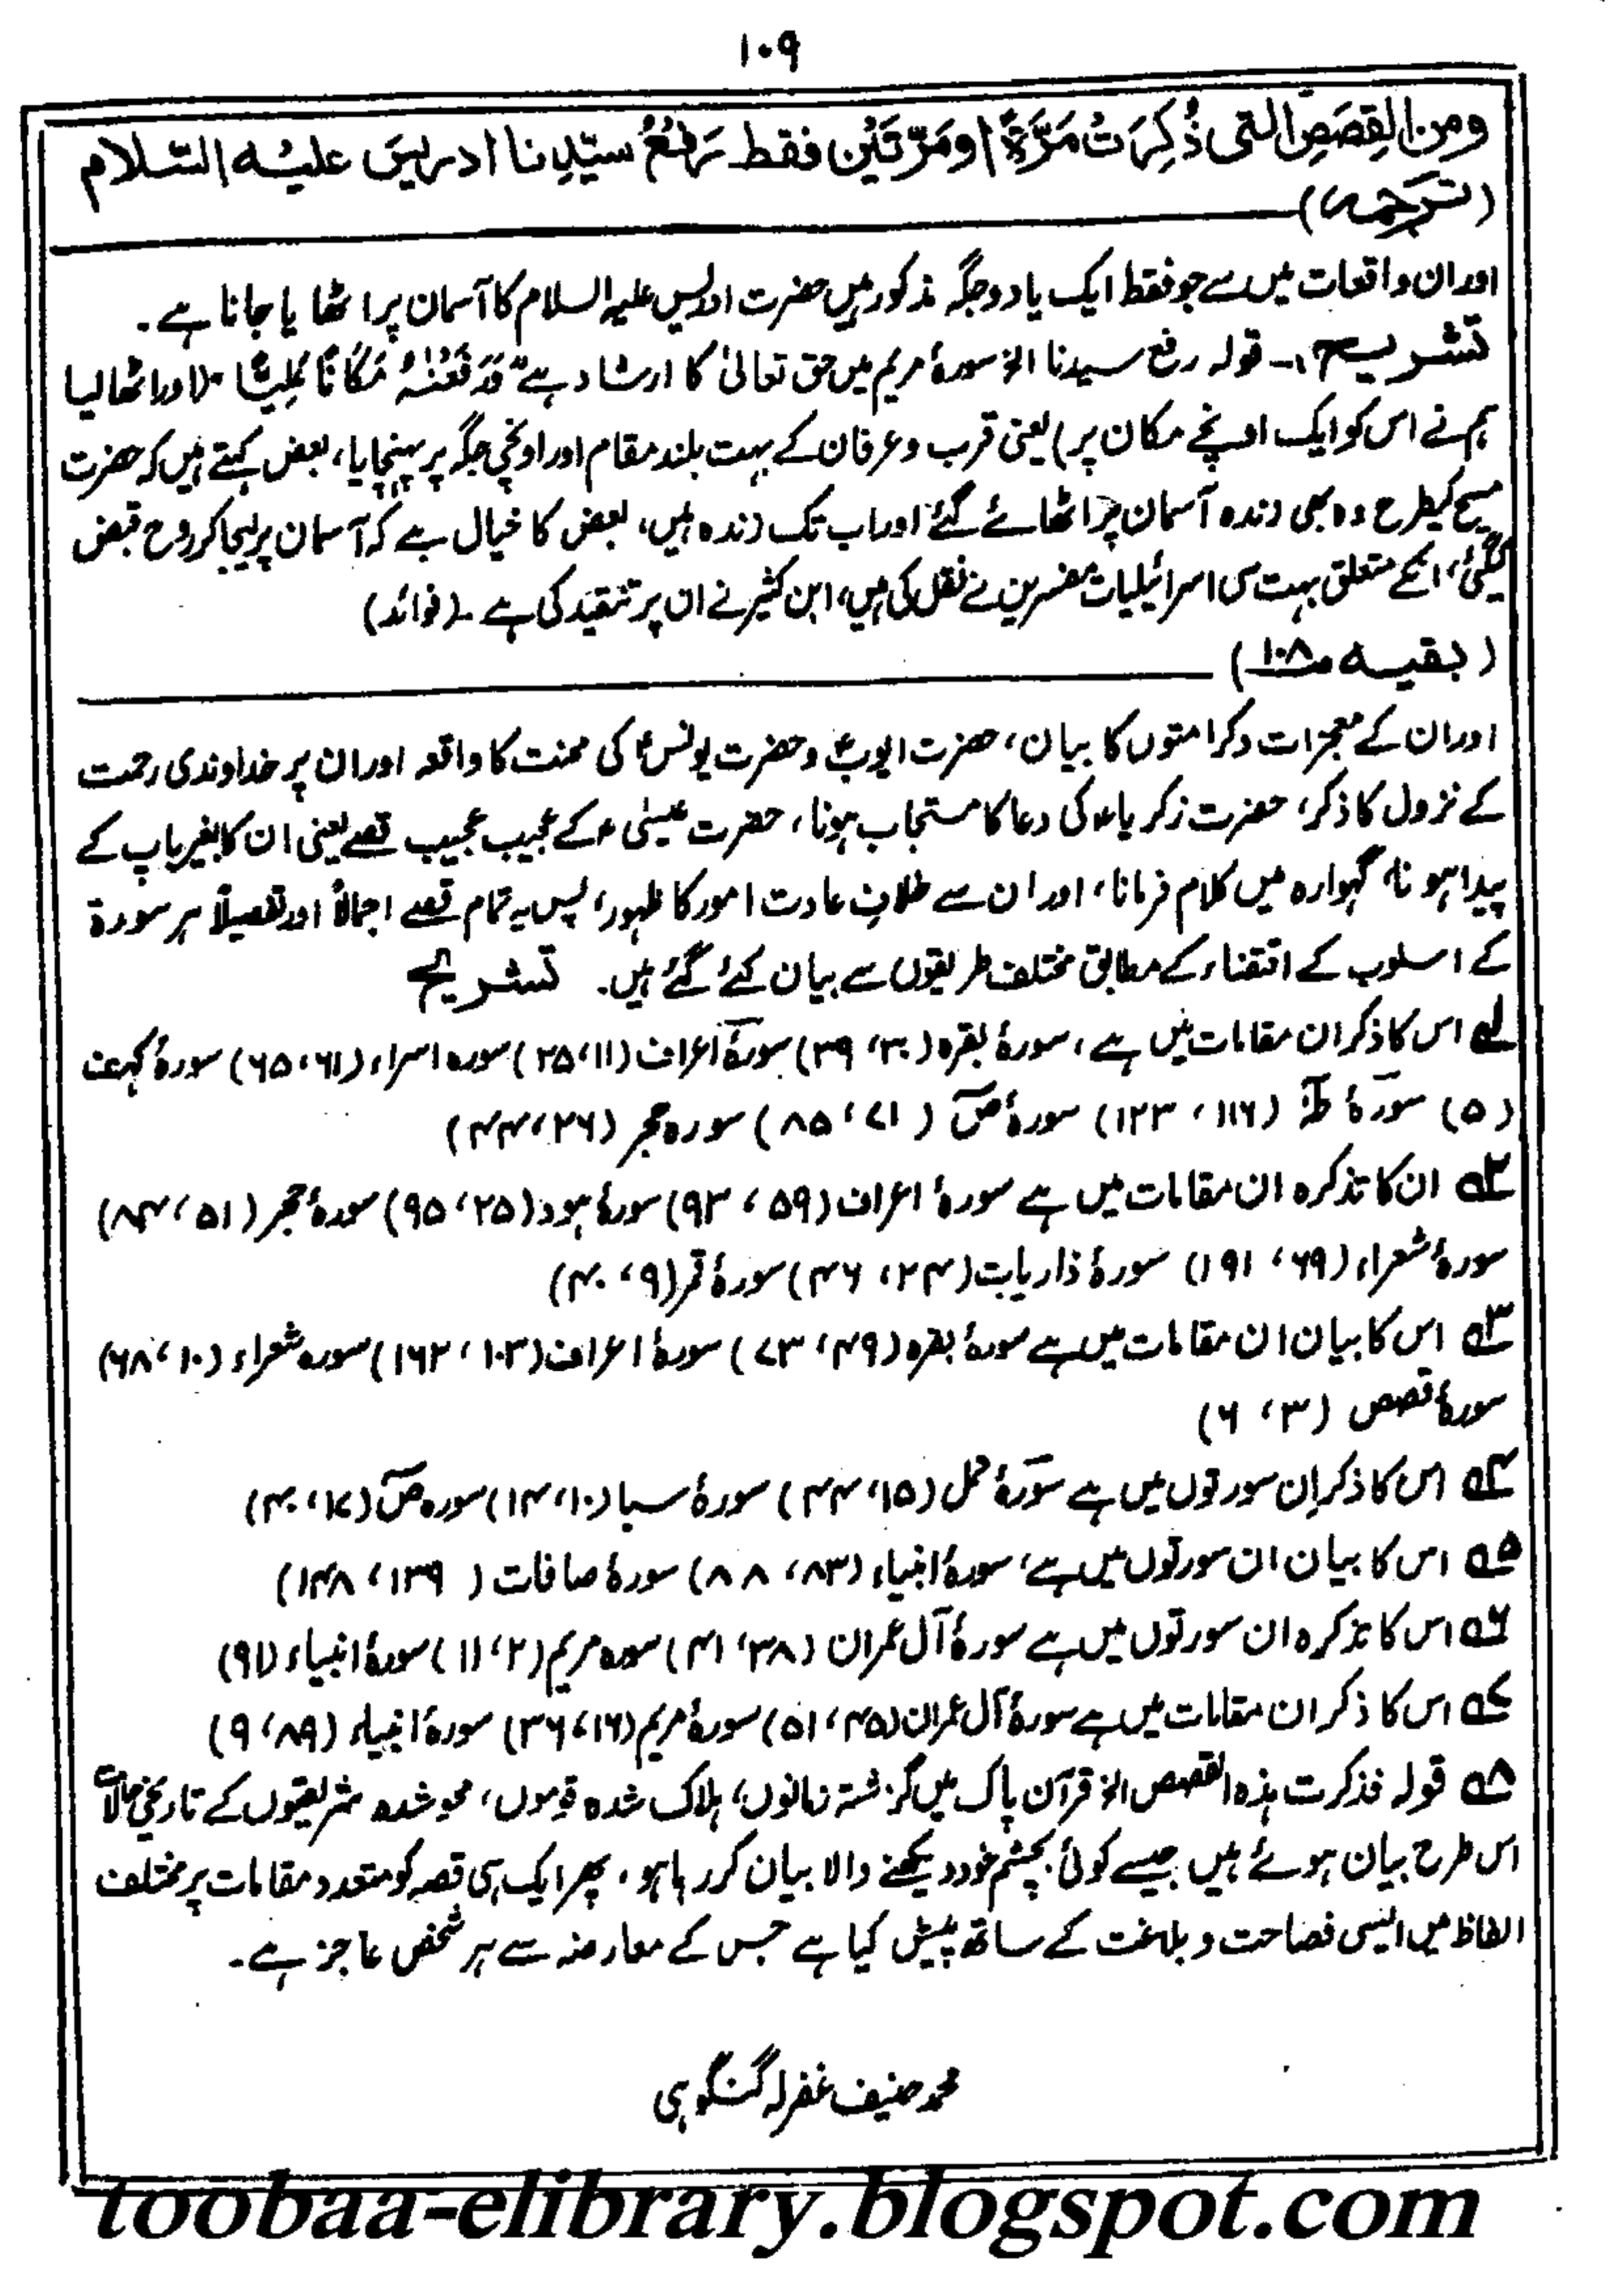 ۱۰۹
ومن القِصَصِ التی ذُکِرَتْ مَرَّةً اومَرَّتَیْن فقط رَفْعُ سیّدِنا ادریسَ علیْہ السّلام
(ترجمہ)
اور ان واقعات میں سے جو فقط ایک یا دو جگہ مذکور ہیں حضرت ادریس علیہ السلام کا آسمان پر اٹھا یا جانا ہے۔
تشریح :۔ قولہ رفع سیدنا الخ سورۂ مریم میں حق تعالیٰ کا ارشاد ہے "وَرَفَعْنٰہُ مَکَانًا عَلِیًّا" (اور اٹھا لیا
ہم نے اس کو ایک اونچے مکان پر) یعنی قرب و عرفان کے بہت بلند مقام اور اونچی جگہ پر پہنچایا، بعض کہتے ہیں کہ حضرت
مسیح کیطرح وہ بھی زندہ آسمان پر اٹھائے گئے اور اب تک زندہ ہیں، بعض کا خیال ہے کہ آسمان پر لیجا کر روح قبض
کیگئی، انکے متعلق بہت سی اسرائیلیات مفسرین نے نقل کی ہیں، ابن کثیر نے ان پر تنقید کی ہے۔ (فوائد)
(بقیہ صـ۱۰۸)
اور ان کے معجزات و کرامتوں کا بیان، حضرت ایوبؑ و حضرت یونسؑ کی محنت کا واقعہ اور ان پر خداوندی رحمت
کے نزول کا ذکر، حضرت زکریاؑ کی دعا کا مستجاب ہونا، حضرت عیسیٰؑ کے عجیب عجیب قصے یعنی ان کا بغیر باپ کے
پیدا ہونا، گہوارہ میں کلام فرمانا، اور ان سے خلافِ عادت امور کا ظہور، پس یہ تمام قصے اجمالاً اور تفصیلاً ہر سورۃ
کے اسلوب کے اقتضاء کے مطابق مختلف طریقوں سے بیان کئے گئے ہیں۔ تشریح
لے اس کا ذکر ان مقامات میں ہے، سورۂ بقرہ (۳۰، ۳۹) سورۂ اعراف (۱۱، ۲۵) سورہ اسراء (۶۱، ۶۵) سورۂ کہف
(۵۰) سورۂ طٰہٰ (۱۱۶، ۱۲۳) سورۂ صٓ (۷۱، ۸۵) سورہ حجر (۲۶، ۴۴)
۲ھ ان کا تذکرہ ان مقامات میں ہے سورۂ اعراف (۵۹، ۹۳) سورۂ ہود (۲۵، ۹۵) سورۂ حجر (۵۱، ۸۴)
سورۂ شعراء (۶۹، ۱۹۱) سورۂ ذاریات (۲۴، ۴۶) سورۂ قمر (۹، ۴۰)
۳ھ اس کا بیان ان مقامات میں ہے سورۂ بقرہ (۴۹، ۷۳) سورۂ اعراف (۱۰۳، ۱۶۲) سورہ شعراء (۱۰، ۶۸)
سورۂ قصص (۳، ۶)
۴ھ اس کا ذکر اِن سورتوں میں ہے سورۂ نمل (۱۵، ۴۴) سورۂ سبا (۱۰، ۱۴) سورہ صٓ (۱۷، ۴۰)
۵ھ اس کا بیان ان سورتوں میں ہے، سورۂ انبیاء (۸۳، ۸۸) سورۂ صافات (۱۳۹، ۱۴۸)
۶ھ اس کا تذکرہ ان سورتوں میں ہے سورۂ آل عمران (۳۸، ۴۱) سورہ مریم (۲، ۱۱) سورۂ انبیاء (۹۱)
۷ھ اس کا ذکر ان مقامات میں ہے سورۂ آل عمران (۴۵، ۵۱) سورۂ مریم (۱۶، ۳۶) سورۂ انبیاء (۸۹، ۹)
۸ھ قولہ فذکرت ہذہ القصص الخ قرآن پاک میں گزشتہ زمانوں، ہلاک شدہ قوموں، محو شدہ شریعتوں کے تاریخی حالات
اس طرح بیان ہوئے ہیں جیسے کوئی بچشم خود دیکھنے والا بیان کر رہا ہو، پھر ایک ہی قصہ کو متعدد مقامات پر مختلف
الفاظ میں ایسی فصاحت و بلاغت کے ساتھ پیش کیا ہے جس کے معارضہ سے ہر شخص عاجز ہے۔
محمد حنیف غفرلہ گنگوہی
toobaa-elibrary.blogspot.com